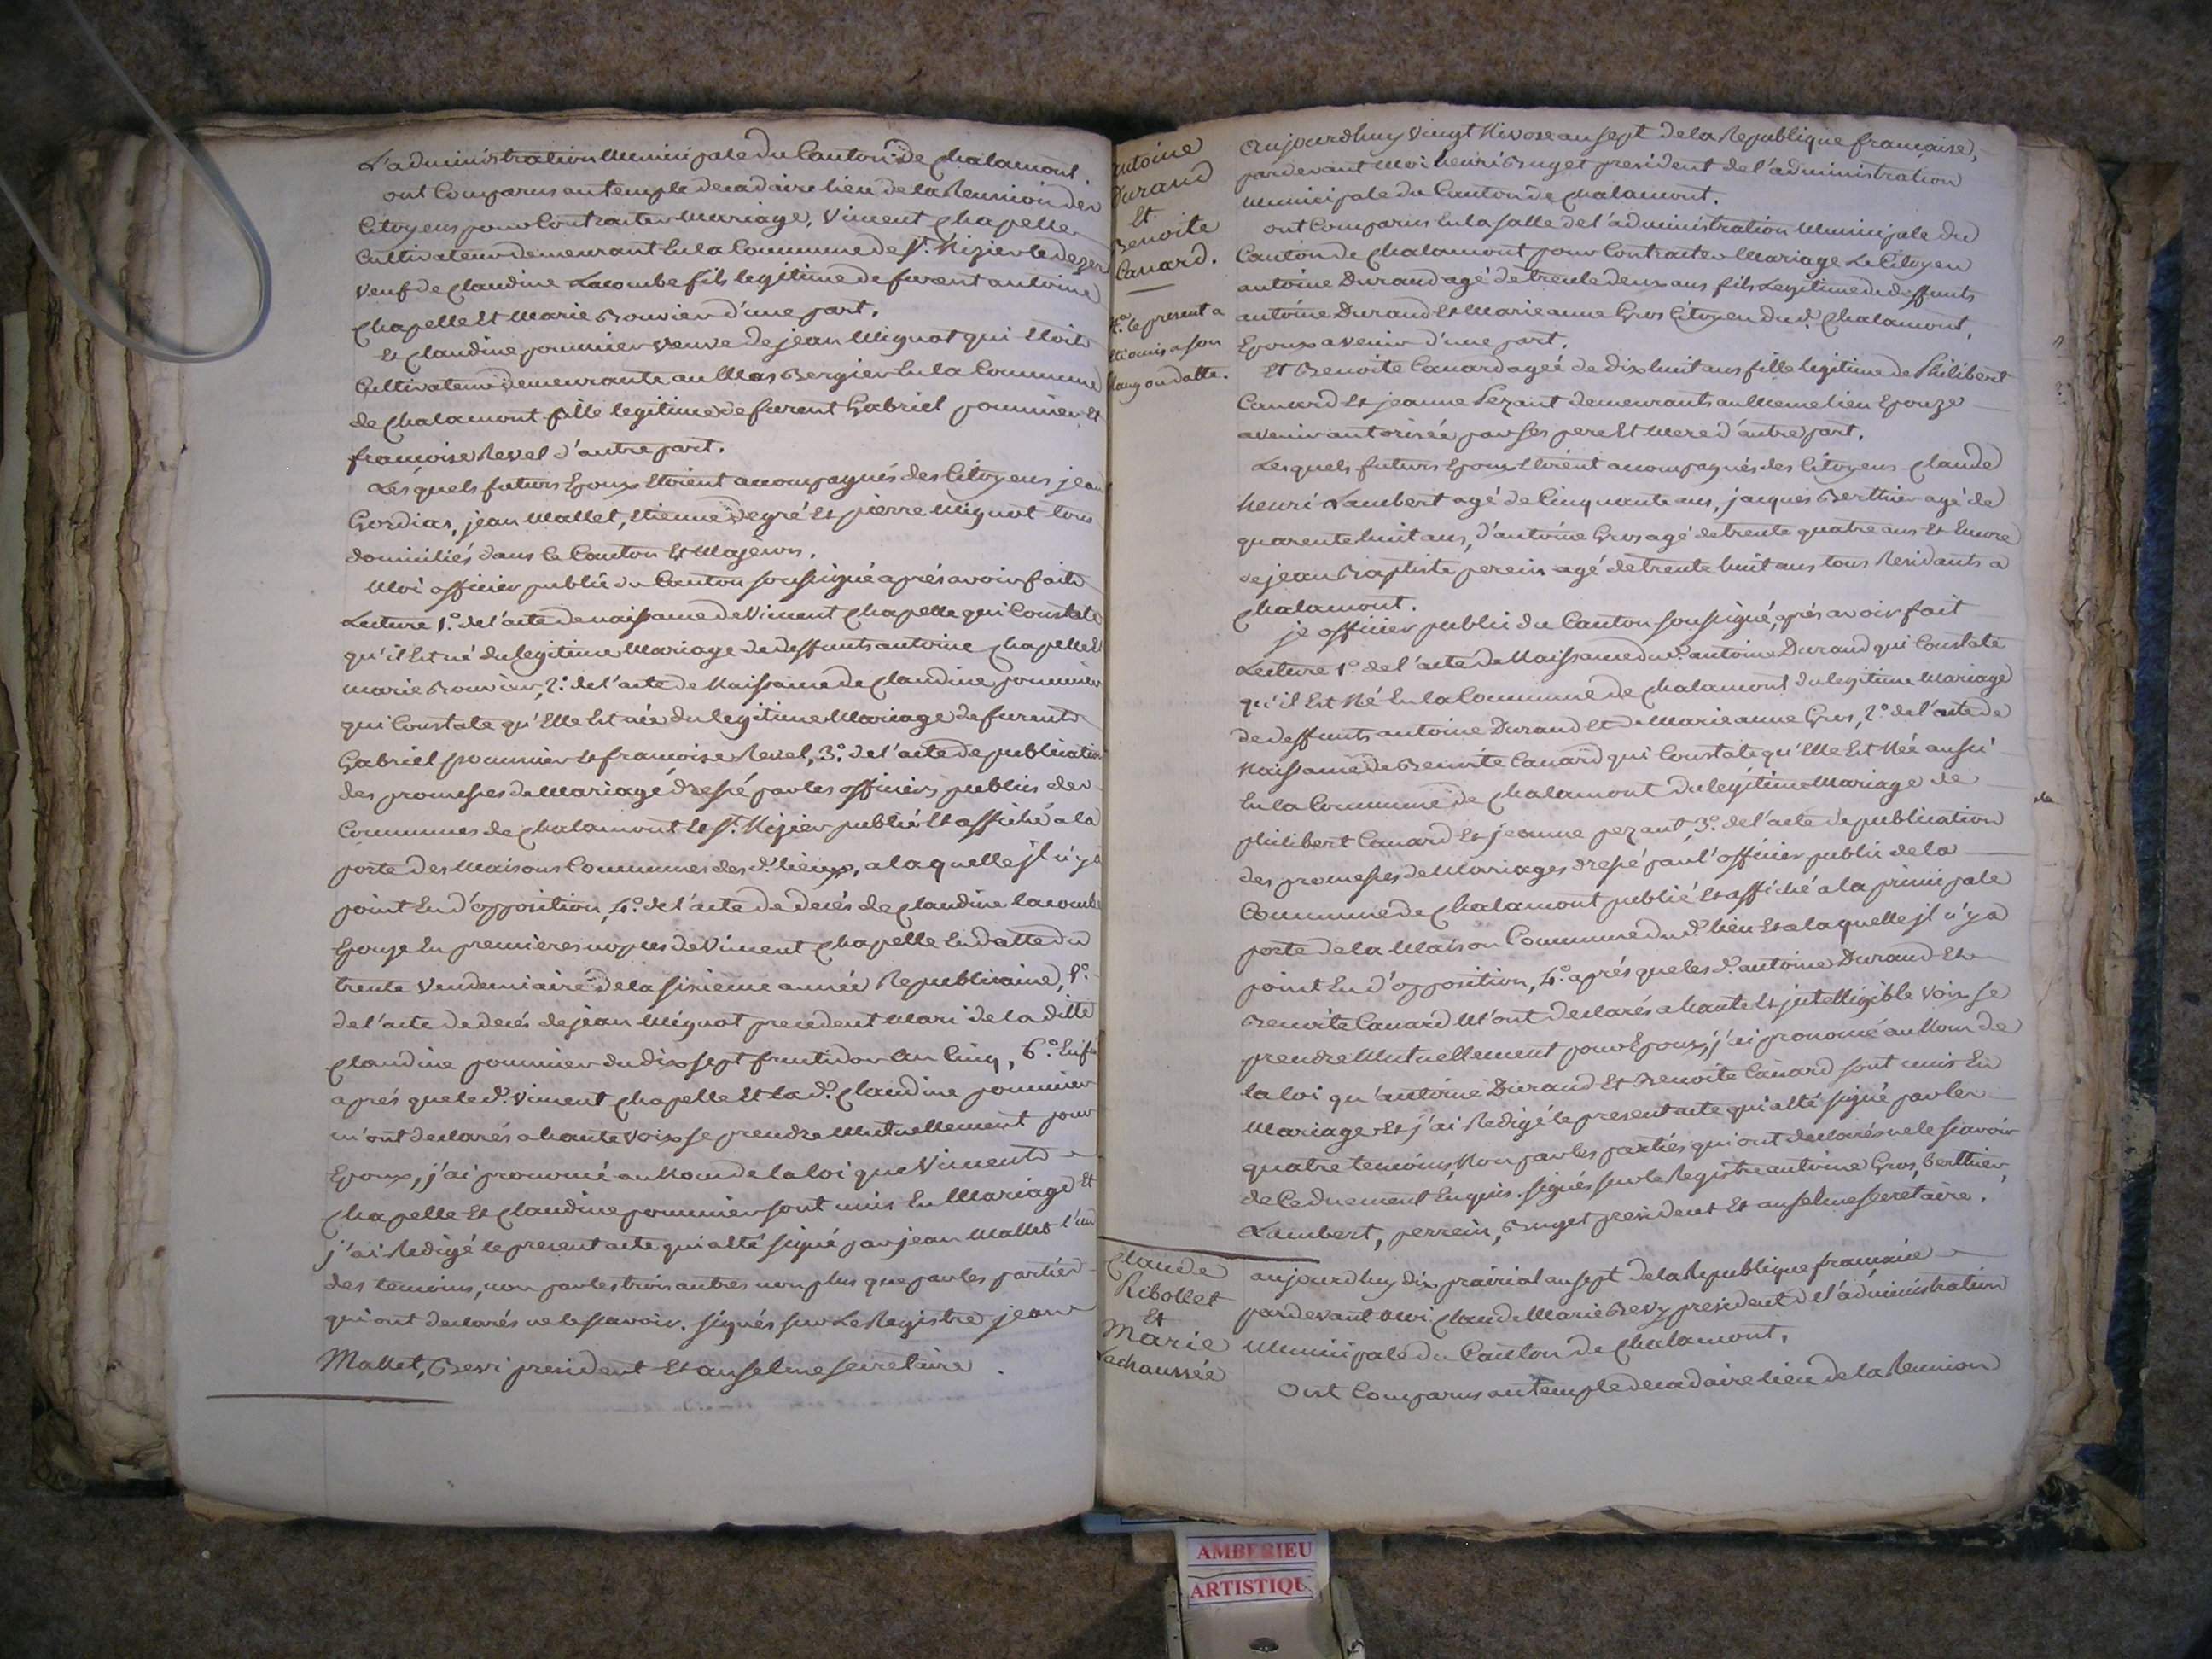 L'administration Municipale du Canton de Chalamont.
ont Comparus au temple decadaire lieu de la Reunion des
Citoyens pour Contracter Mariage, Viment Chapelle
Cultivateur demeurant En la Commune de St. Nizier le dezer
Veuf de Claudine Lacombe fils legitime de furent antoine
Chapelle Et Marie Bouvier d'une part.
Et Claudine pommier Veuve de jean Mignot qui Etoit
Cultivateur demeurante au Mas Bergier En la Commune
de Chalamont fille legitime de furent Gabriel pommier Et
francoise Revel d'autre part.
Lesquels futurs Epoux Etoient accompagnés des Citoyens jean
Gordias, jean Mallet, Etienne Degré Et pierre Mignot tous
domiciliés dans le Canton Et Majeurs.
Moi officier public du Canton soussigné aprés avoir fait
Lecture 1.° de l'acte de naissance de Viment Chapelle qui Constate
qu'il Est né du legitime Mariage de deffunts antoine Chapelle Et
Marie Bouvier, 2.° de l'acte de Naissance de Claudine pommier
qui Constate qu'Elle Est née du legitime Mariage de furent
Gabriel pommier Et francoise Revel, 3.° de l'acte de publication
des promesses de Mariage dressé par les officiers publics des
Communes de Chalamont Et St. Nizier publié Et affiché a la
porte des Maisons Communes des d. lieux, a laquelle jl n'y a
point Eu d'opposition, 4.° de l'acte de decés de Claudine lacombe
Epouse En premieres nopces de Viment Chapelle En datte du
trente Vendemiaire de la sixieme année Republicaine, 5.°
de l'acte de decés de jean Mignot precedent Mari de la ditte
Claudine pommier du dix sept fructidor an Cinq, 6.° Enfin
aprés que le d. Viment Chapelle Et la d. Claudine pommier
m'ont declarés a haute voix se prendre Mutuellement pour
Epoux, j'ai prononcé au Nom de la loi que Viment
Chapelle Et Claudine pommier sont unis En Mariage Et
j'ai Redigé le present acte qui a Eté signé par jean Mallet l'un
des temoins, non par les trois autres non plus que par les parties
qui ont declarés ne le scavoir. signés sur Le Registre jean
Mallet, Bevi president Et anselme secretaire.
antoine
Durand
Et
Benoite
Canard.
N.a le present a
Eté omis a son
Rang ou datte.
Aujourdhuy Vingt Nivose an sept de la Republique francaise,
pardevant Moi henri Buget president de l'administration
Municipale du Canton de Chalamont.
ont Comparus En la salle de l'administration Municipale du
Canton de Chalamont pour Contracter Mariage Le Citoyen
antoine Durand agé de trente deux ans fils Legitime de deffunts
antoine Durand Et Marie anne Gros Citoyen du d. Chalamont,
Epoux a venir d'une part.
Et Benoite Canard agée de dix huit ans fille legitime de Philibert
Canard Et jeanne Pezant demeurants au Meme lieu Epouze
a venir autorisée par ses pere Et Mere d'autre part.
Lesquels futurs Epoux Etoient accompagnés des Citoyens Claude
henri Lambert agé de Cinquante ans, jacques Berthier agé de
quarente huit ans, d'antoine Gros agé de trente quatre ans Et Encore
de jean Baptiste perein agé de trente huit ans tous Residants a
Chalamont.
je officier public du Canton soussigné, aprés avoir fait
Lecture 1.° de l'acte de Naissance du d. antoine Durand qui Constate
qu'il Est Né En la Commune de Chalamont du legitime Mariage
de deffunts antoine Durand Et de Marie anne Gros, 2.° de l'acte de
Naissance de Benoite Canard qui Constate qu'Elle Est Née aussi
En la Commune de Chalamont du legitime Mariage de
philibert Canard Et jeanne pezant, 3.° de l'acte de publication
des promesses de Mariages dressé par l'officier public de la
Commune de Chalamont publié Et affiché a la principale
porte de la Maison Commune du d. lieu Et a laquelle jl n'y a
point Eu d'opposition, 4.° aprés que les d. antoine Durand Et
Benoite Canard M'ont declarés a haute Et jntelligible Voix se
prendre Mutuellement pour Epoux, j'ai prononcé au Nom de
la loi qu'antoine Durand Et Benoite Canard sont unis En
Mariage Et j'ai Redigé le present acte qui a Eté signé par les
quatre temoins, Non par les parties qui ont declarés ne le scavoir
de Ce duement Enquis. signés sur le Registre antoine Gros, Berthier,
Lambert, perrein, Buget president Et anselme secretaire.
Claude
Ribollet
Et
Marie
Lachaussée
aujourdhuy dix prairial an sept de la Republique francaise
pardevant Moi Claude Marie Bevy president de l'administration
Municipale du Canton de Chalamont.
Ont Comparus au temple decadaire lieu de la Reunion
AMBERIEU
ARTISTIQU